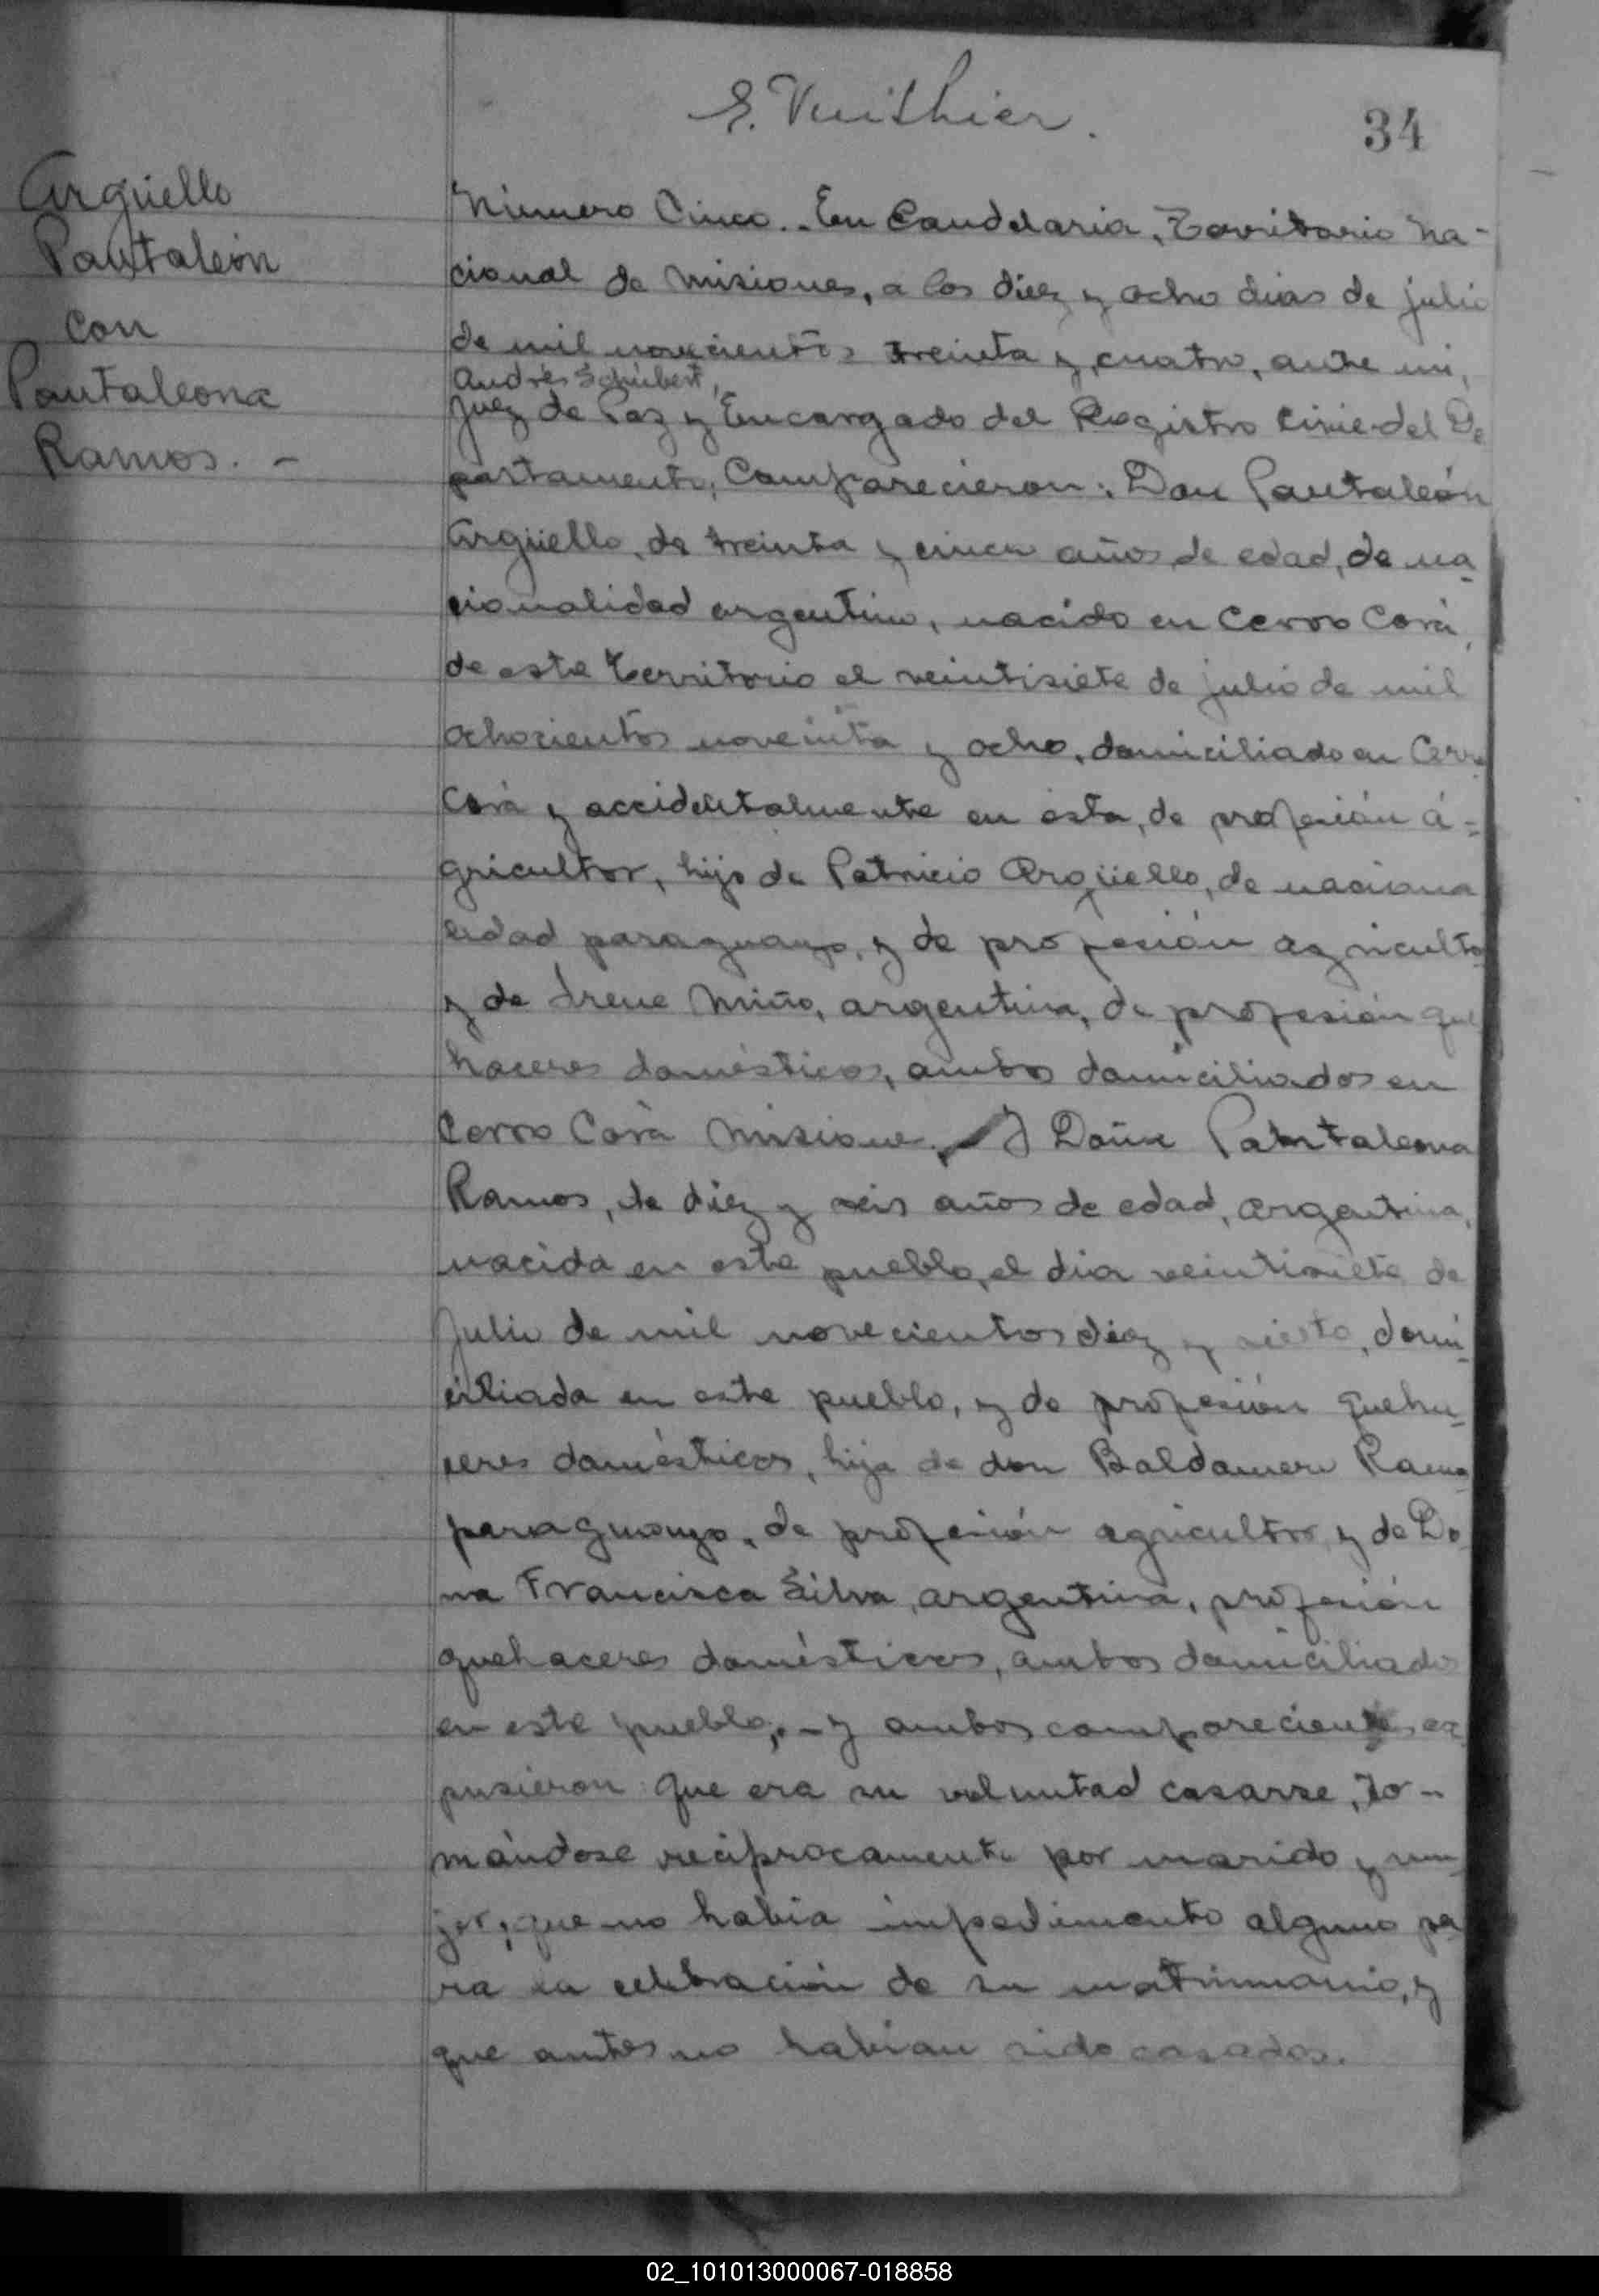 E. Vuithier.
34
Argüello
Pantaleón
con
Pantaleona
Ramos. -
Número Cinco.. En Candelaria, Territorio Na-
cional de Misiones, a los diez y ocho dias de julio
de mil novecientos treinta y cuatro, ante mi,
Andrés Schubert,
Juez de Paz y Encargado del Registro Civil del De
partamento, Comparecieron: Don Pantaleón
Argüello, de treinta y cinco años de edad, de na-
cionalidad argentino, nacido en Cerro Corá,
de este territorio el veintisiete de julio de mil
ochocientos noventa y ocho, domiciliado en Cerro
Corá y accidentalmente en ésta, de profesión a-
gricultor, hijo de Patricio Argüello, de naciona
lidad paraguayo, y de profesión agricultor
y de Irene Miño, argentina, de profesión que
haceres domésticos, ambos domiciliados en
Cerro Corá Misiones, Y Doña Pantaleona
Ramos, de diez y seis años de edad, argentina,
nacida en este pueblo, el dia veintisiete de
Julio de mil novecientos diez y siete, domi-
ciliada en este pueblo, y de profesión queha-
ceres domésticos, hija de don Baldomero Ramos
paraguayo, de profesión agricultor y de Do
ña Francisca Silva, argentina, profesión
quehaceres domésticos, ambos domiciliados
en este pueblo,.- y ambos comparecientes ex
pusieron: Que era su voluntad casarse, to-
mándose reciprocamente por marido y mu
jer, que no habia impedimento alguno pa
ra la celebración de su matrimonio, y
que antes no habian sido casados.
02_101013000067-018858